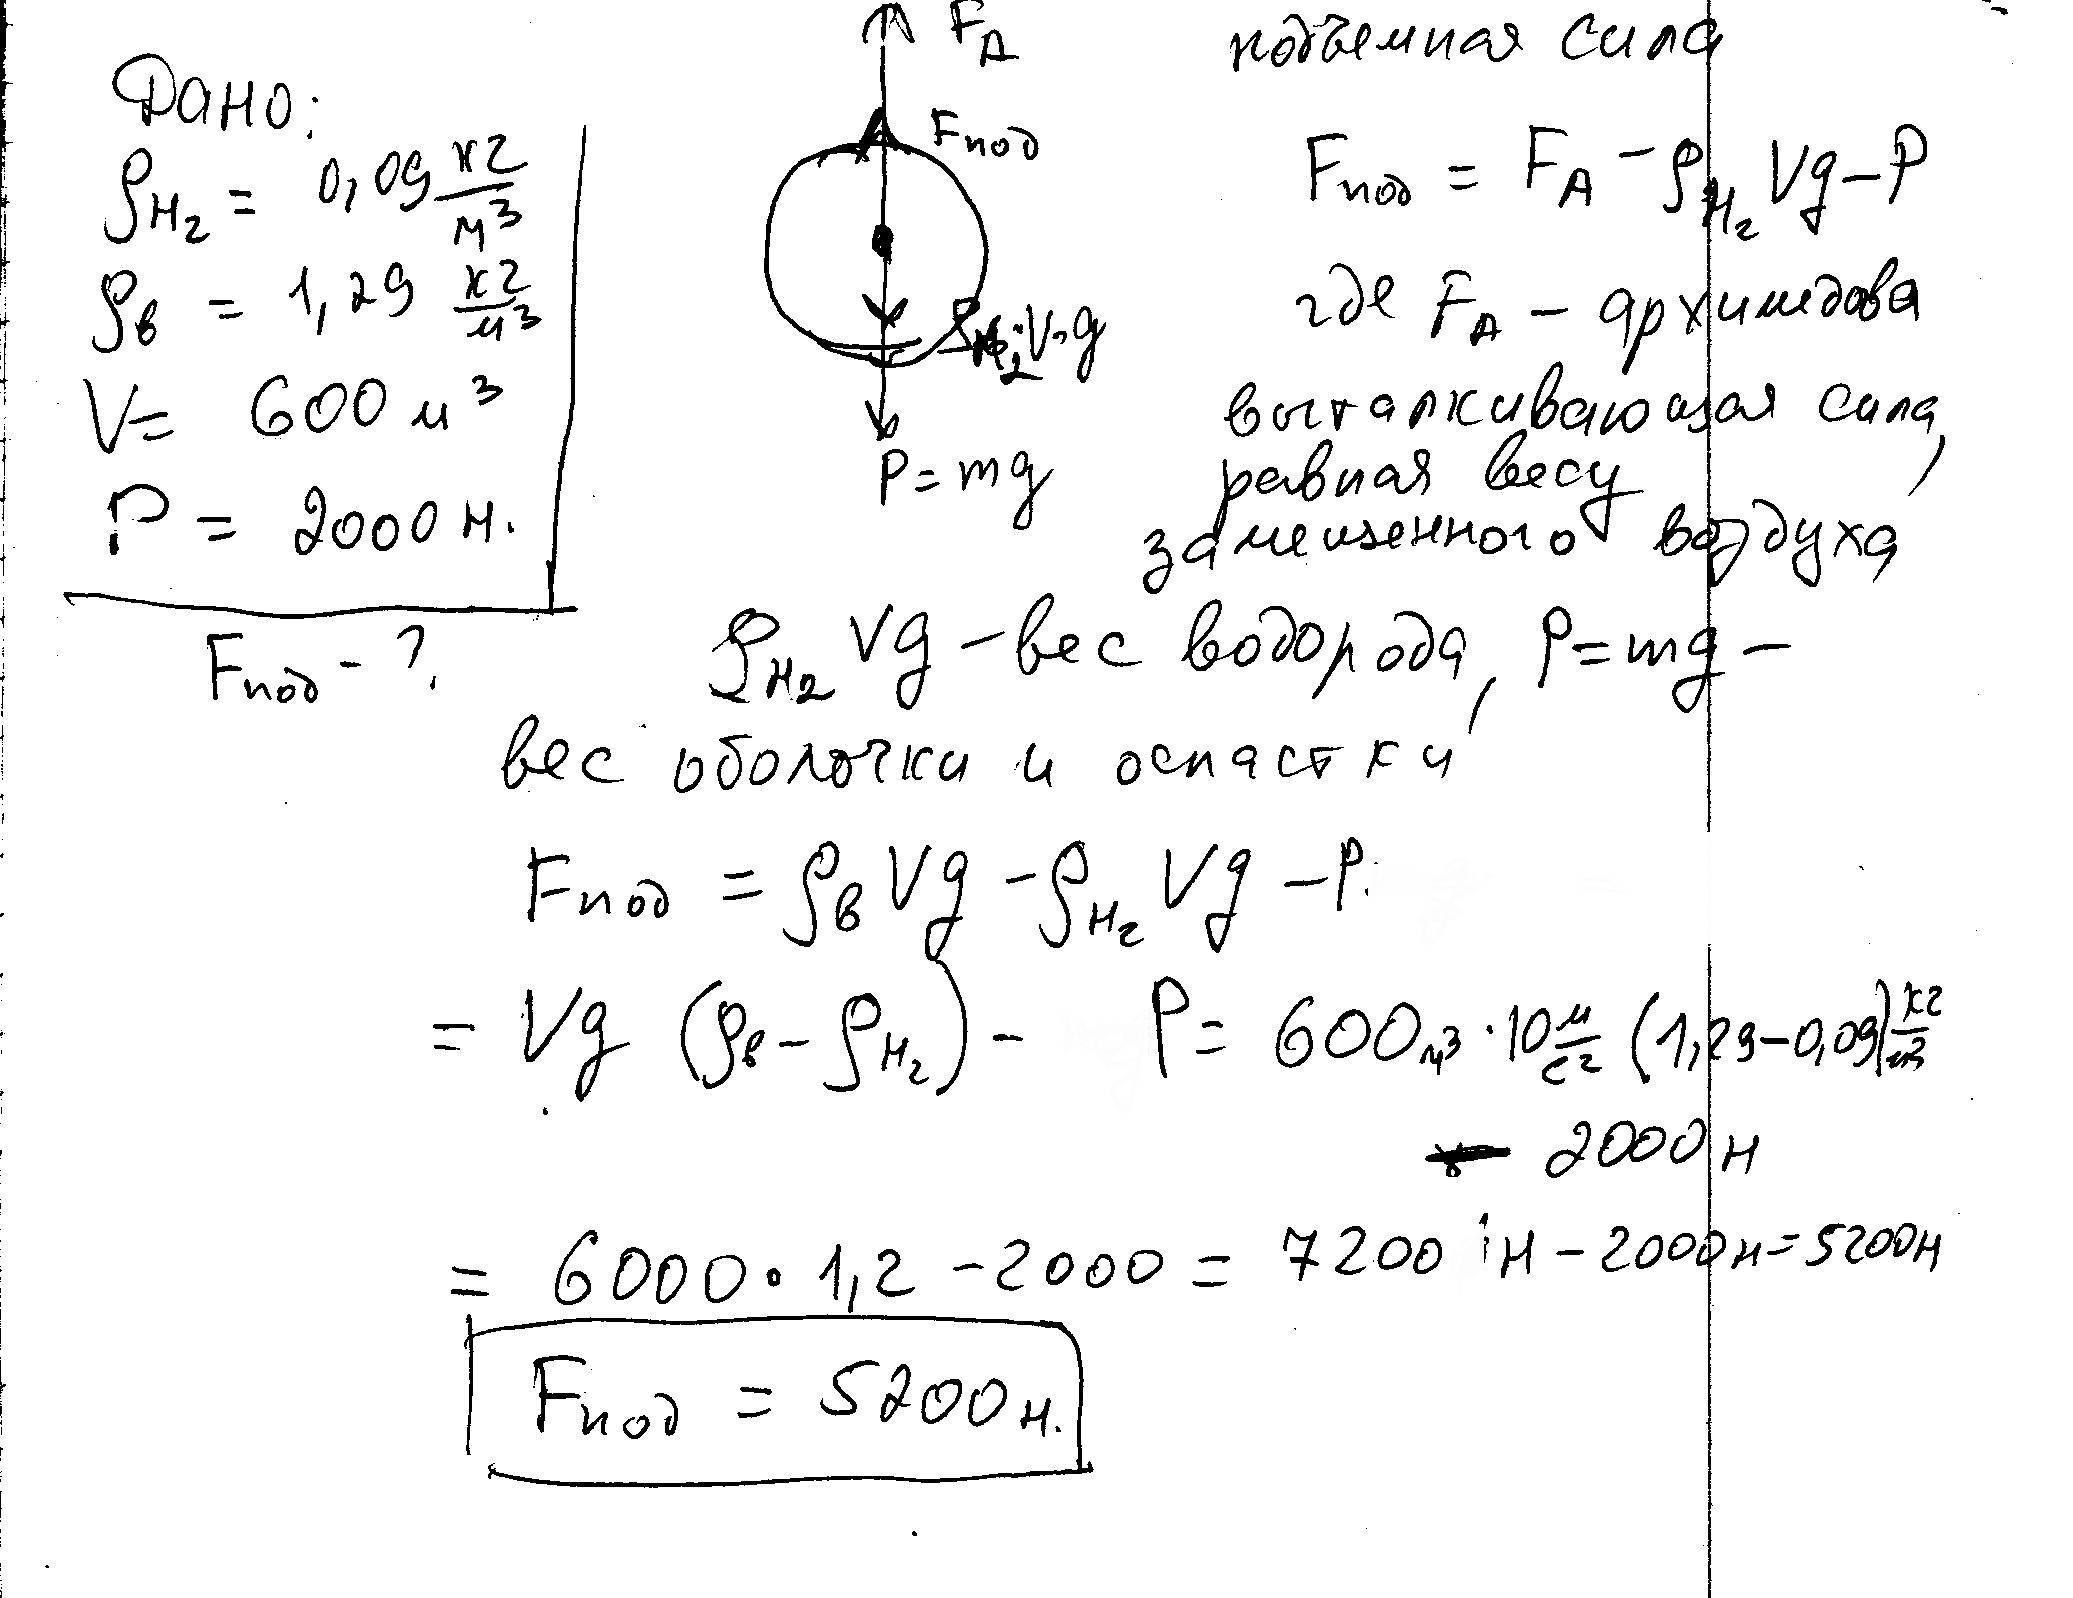 Дано:
ρH₂ = 0,09 кг/м³
ρв = 1,29 кг/м³
V = 600 м³
P = 2000 н.
Fпод - ?
FA
Fпод
ρH₂·V·g
P = mg
подъемная сила
Fпод = FA - ρH₂ Vg - P
где FA - архимедова
выталкивающая сила,
равная весу
замещенного воздуха
ρH₂ Vg - вес водорода, P = mg -
вес оболочки и оснастки
Fпод = ρв Vg - ρH₂ Vg - P.
= Vg (ρв - ρH₂) - P = 600 м³ · 10 м/с² (1,29 - 0,09) кг/м³
- 2000 н
= 6000 · 1,2 - 2000 = 7200 н - 2000 н = 5200 н
Fпод = 5200 н.